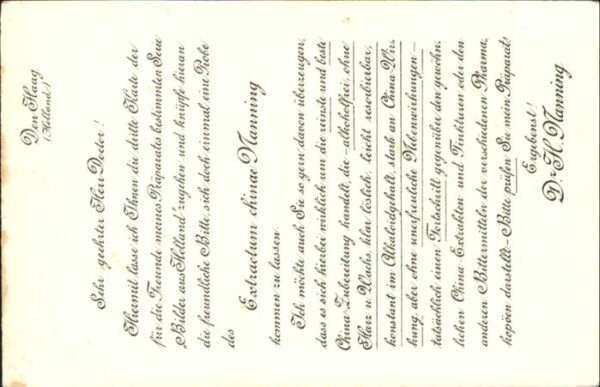 Den Haag
(Holland.)
Sehr geehrter Herr Doctor!
Hiermit lasse ich Ihnen die dritte Karte der
für die Freunde meines Präparates bestimmten Serie
"Bilder aus Holland" zugehen und knüpfe hieran
die freundliche Bitte, sich doch einmal eine Probe
des
Extractum chinae Nanning
kommen zu lassen.
Ich möchte auch Sie so gern davon überzeugen,
dass es sich hierbei wirklich um die reinste und beste
China-Zubereitung handelt, die - alkoholfrei, ohne
Harz u. Wachs, klar löslich, leicht resorbierbar,
konstant im Alkaloidgehalt, stark an China-Wir-
kung, aber ohne unerfreuliche Nebenwirkungen -
tatsächlich einen Fortschritt gegenüber den gewöhn-
lichen China-Extrakten und Tinkturen oder den
anderen Bittermitteln der verschiedenen Pharma-
kopöen darstellt - Bitte prüfen Sie mein Präparat!
Ergebenst!
Dr. H. Nanning